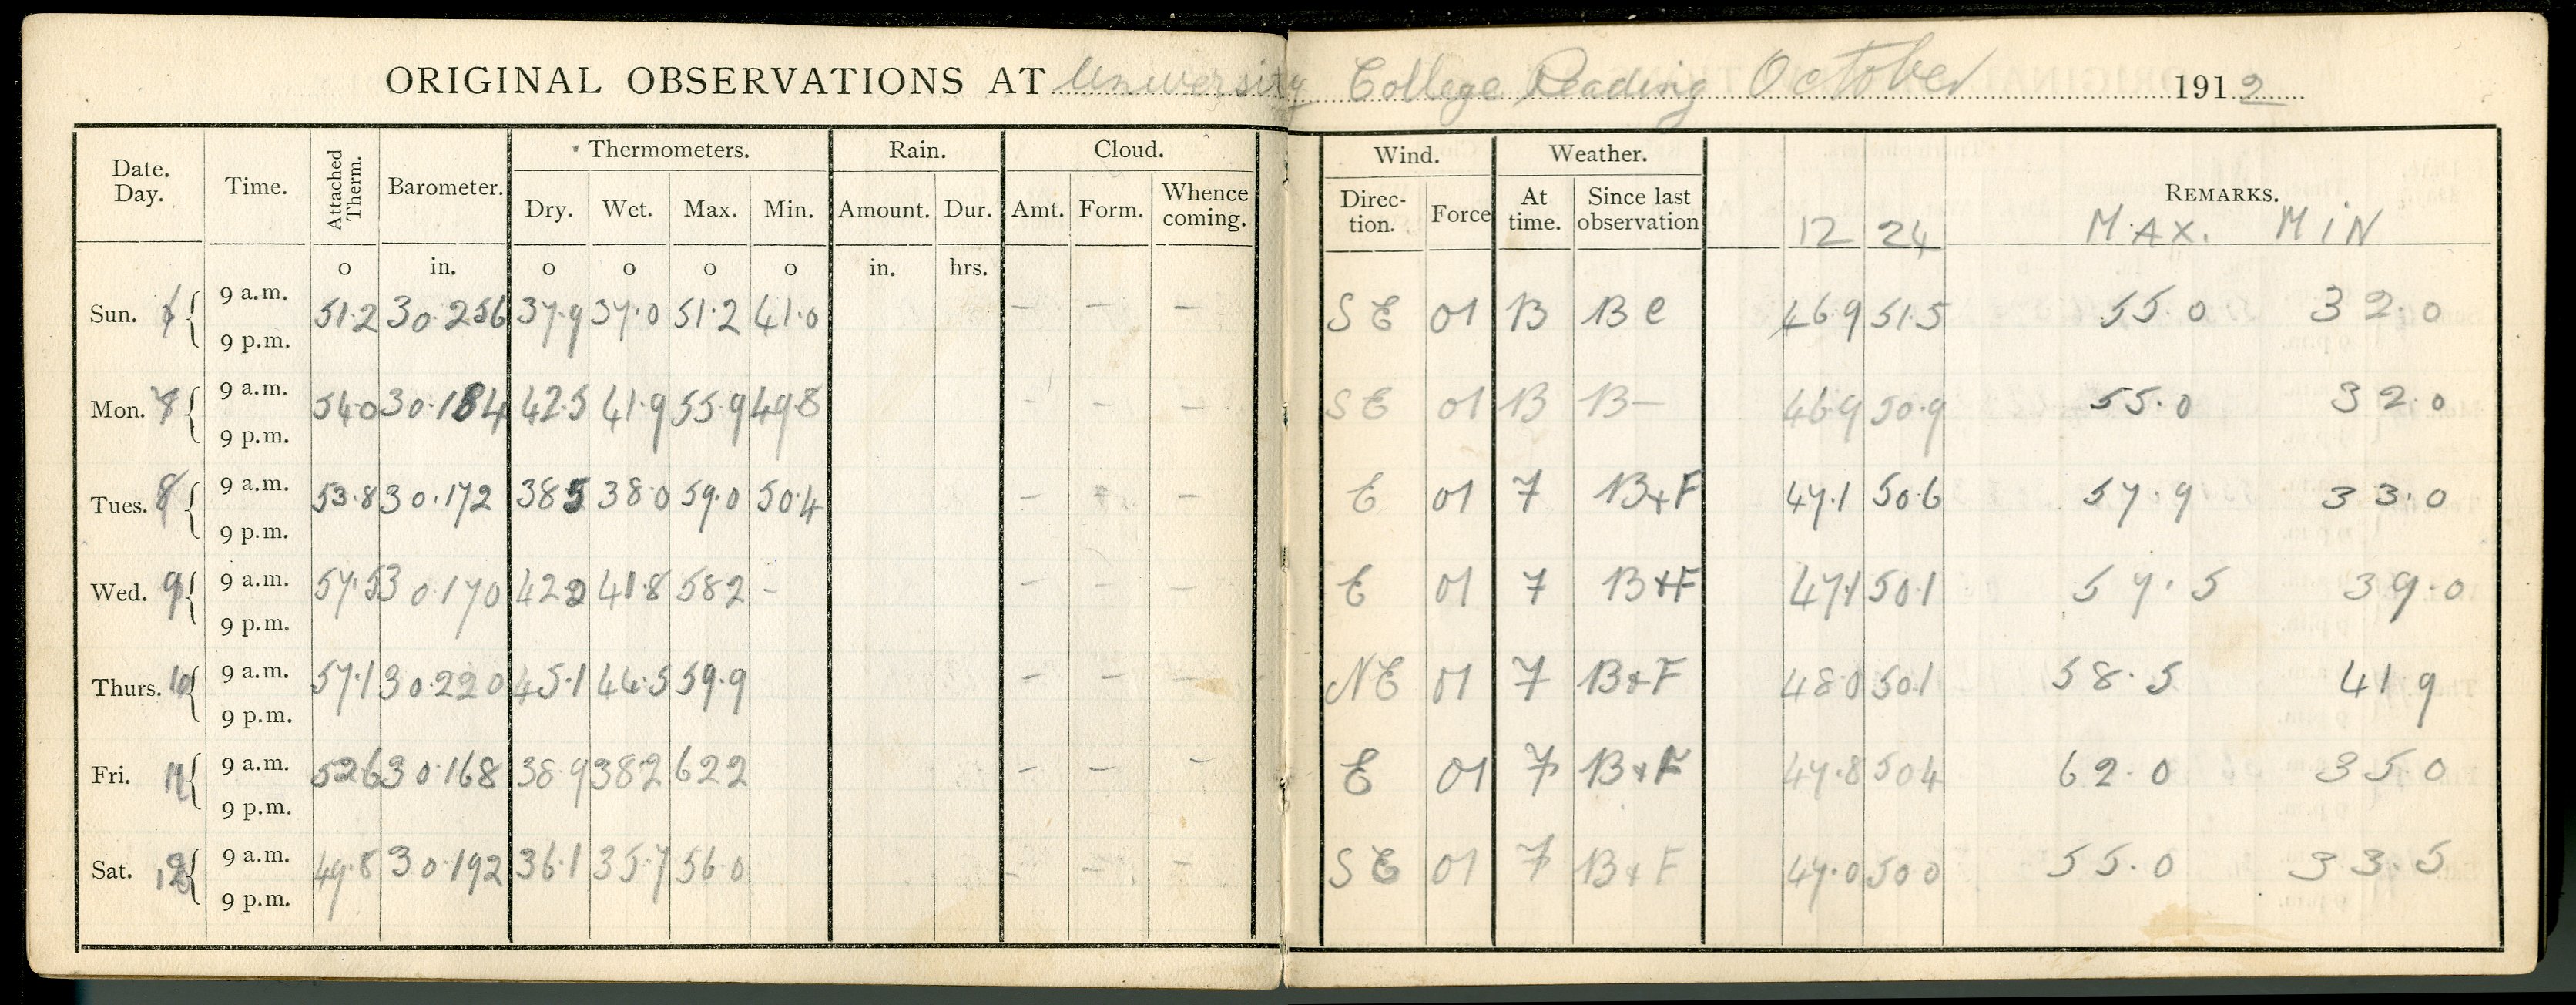 ORIGINAL OBSERVATIONS AT University College Reading October 1912
Date. Day. Time. Attached Therm. Barometer. Thermometers. Rain. Cloud. Wind. Weather. REMARKS.
Dry. Wet. Max. Min. Amount. Dur. Amt. Form. Whence coming. Direc- tion. Force At time. Since last observation 12 24 MAX. MIN
o in. o o o o in. hrs.
Sun. 9 a.m. 51.2 30.256 37.9 37.0 51.2 41.0 — — — SE 01 B Be 46.9 51.5 55.0 32.0
9 p.m.
Mon. 7 9 a.m. 54.0 30.184 42.5 41.9 55.9 49.8 — — — SE 01 B B— 46.9 50.9 55.0 32.0
9 p.m.
Tues. 8 9 a.m. 53.8 30.172 385 38.0 59.0 50.4 — — SE 01 7 B+F 47.1 50.6 57.9 33.0
9 p.m.
Wed. 9 9 a.m. 57.5 30.170 422 41.8 582 - — — — E 01 7 B+F 47.1 50.1 57.5 39.0
9 p.m.
Thurs. 10 9 a.m. 57.1 30.220 45.1 44.5 59.9 — — — NE 01 7 B+F 48.0 50.1 58.5 41.9
9 p.m.
Fri. 11 9 a.m. 526 30.168 38.9 382 622 — — — E 01 7 B+F 47.8 504 62.0 35.0
9 p.m.
Sat. 12 9 a.m. 49.8 30.192 36.1 35.7 56.0 — — — SE 01 7 B+F 47.0 500 55.0 33.5
9 p.m.